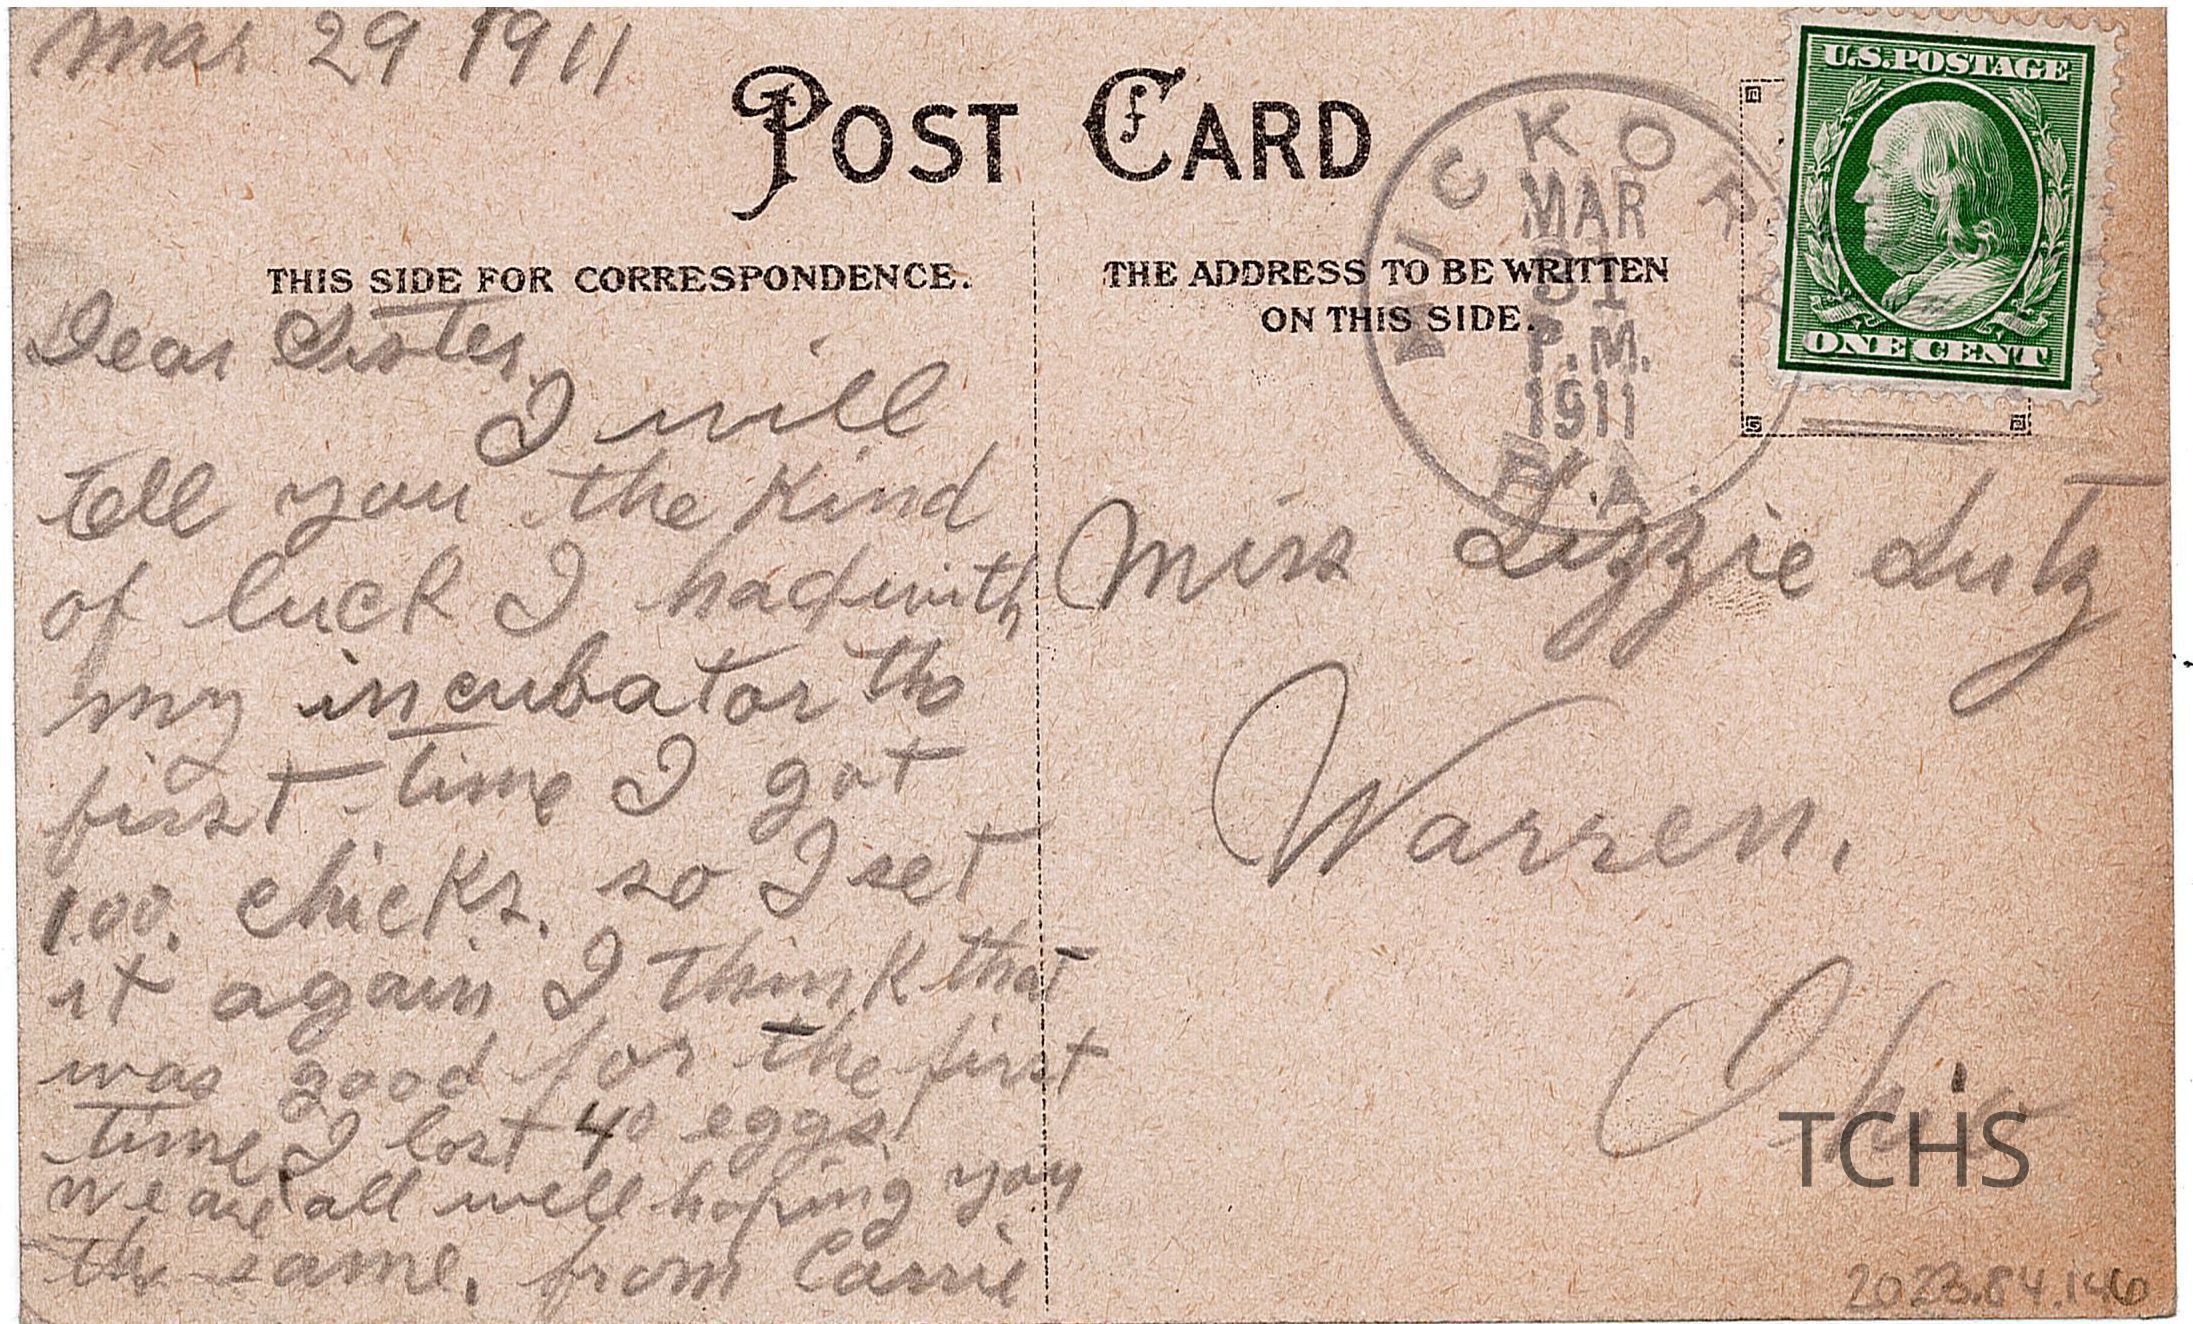 Mar 29 1911
POST CARD
U.S. POSTAGE
ONE CENT
HICKORY
MAR
31
P.M.
1911
PA.
THIS SIDE FOR CORRESPONDENCE.
THE ADDRESS TO BE WRITTEN
ON THIS SIDE.
Dear Sister,
I will
tell you the kind
of luck I had with
my incubator the
first time I got
100. chicks. so I set
it again I think that
was good for the first
time, I lost 40 eggs.
We are all well hoping you
the same. from Carrie
Miss Lizzie Lutz
Warren,
Ohio
TCHS
2023.84.146